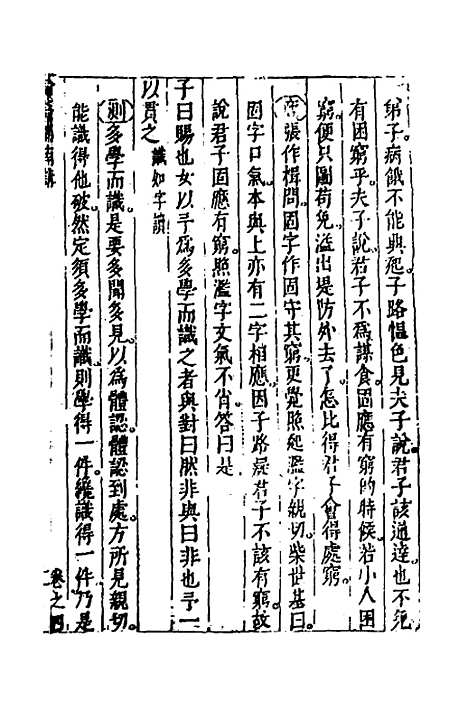 弟子病餓不能興起子路慍色見夫子說君子該通達也不免
有困窮乎夫子說君子不爲謀食固應有窮的時候若小人困
窮便只圖苟免溢出堤防外去了怎比得君子會得處窮
張作楫問固字作固守其窮更覺照起濫字親切柴世基曰
固字口氣本與上亦有二字相應因子路疑君子不該有窮故
說君子固應有窮照濫字文氣不肖答曰是
子曰賜也女以予爲多學而識之者與對曰然非與曰非也予一
以貫之 識如字讀
則多學而識是要多聞多見以爲體認體認到處方所見親切
能識得他破然定須多學而識則學得一件纔識得一件乃是
卷之四